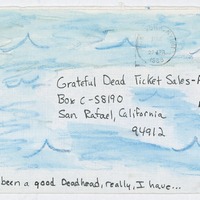 Grateful Dead Ticket Sales-
Box C-S8190
San Rafael, California
94912
been a good Deadhead, really, I have...